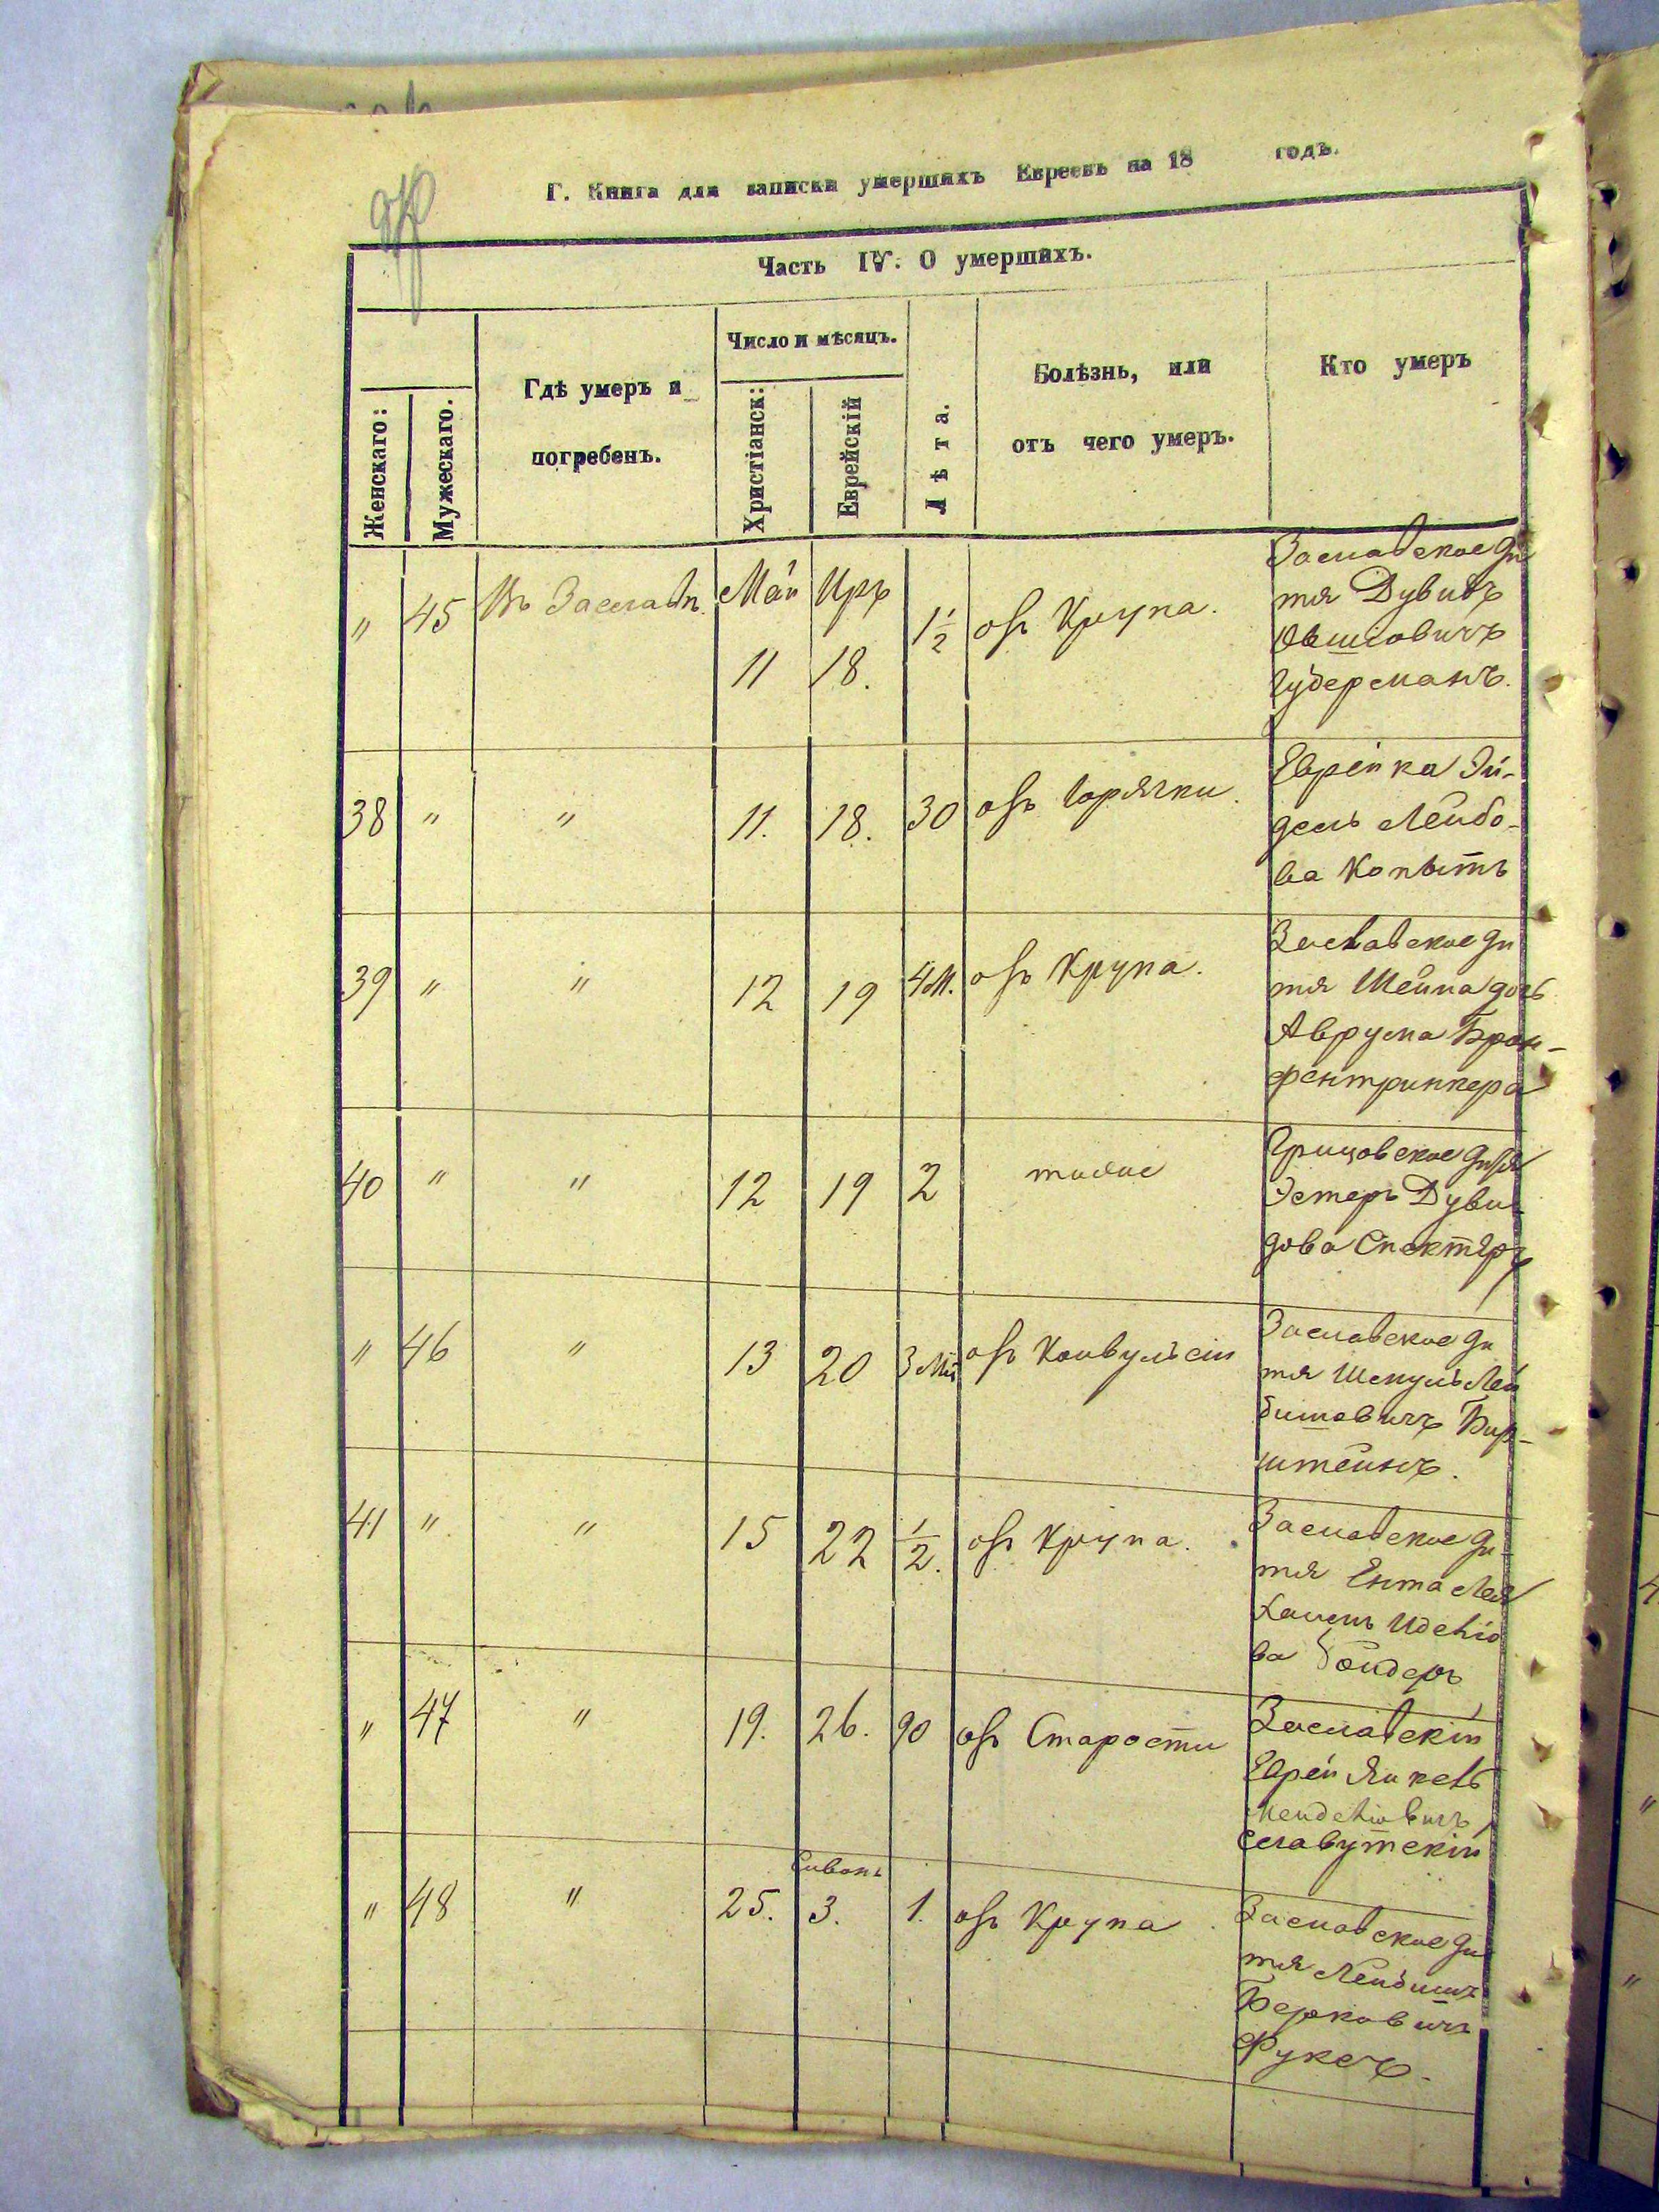 Г. Книга для записки умершихъ Евреевъ на 18 годъ.
Часть IV. О умершихъ.
Женскаго:
Мужескаго.
Гдѣ умеръ и
погребенъ.
Число и мѣсяцъ.
Христіанск:
Еврейскій
Лѣта.
Болѣзнь, или
отъ чего умеръ.
Кто умеръ
" 45 Въ Заславлѣ. Май Иръ 1½ отъ Крупа.
11 18.
Заславское ди
тя Дувидъ
Овшіовичъ
Губерманъ.
38 " " 11. 18. 30 отъ Горячки.
Еврейка Эй-
дель Лейбо-
ва Копытъ
39 " " 12 19 4 М. отъ Крупа.
Заславское ди
тя Шейна дочь
Аврума Брон-
фентринкера
40 " " 12 19 2 тоже
Грицовское дитя
Эстеръ Дуви-
дова Спекторъ
" 46 " 13 20 3 М. отъ Конвульсіи
Заславское ди
тя Шмуль Лей
бишовичъ Бир-
штейнъ.
41 " " 15 22 ½. отъ Крупа.
Заславское ди-
тя Ента Лея
ва
" 47 " 19. 26. 90 отъ Старости
Заславскій
Еврей Янкель
Менделіовичъ
Славутскій
" 48 " 25. Сивонъ 3. 1. отъ Крупа.
Заславское ди
тя Лейбишъ
Берковичъ
Фуксъ.